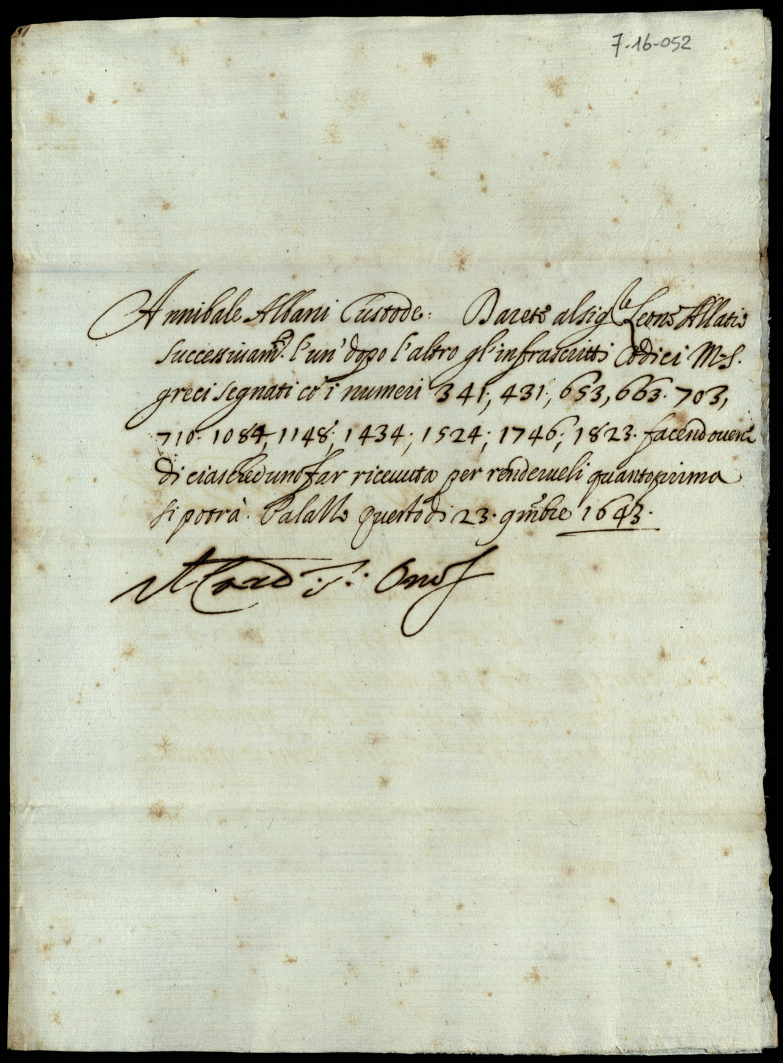 7-16-052
Annibale Albani Custode: Darete al Sig.re Leone Allatio
successiuam.te l'un' dopo l'altro gl'infrascritti Codici M.S.
greci segnati co' i numeri 341, 431, 653, 663. 703,
710. 1084, 1148, 1434, 1524, 1746, 1823. facendouene
di ciascheduno far riceuuta per renderueli quanto prima
si potrà. Palazzo questo dì 23. 9mbre 1643.
Il Card. S. Onof